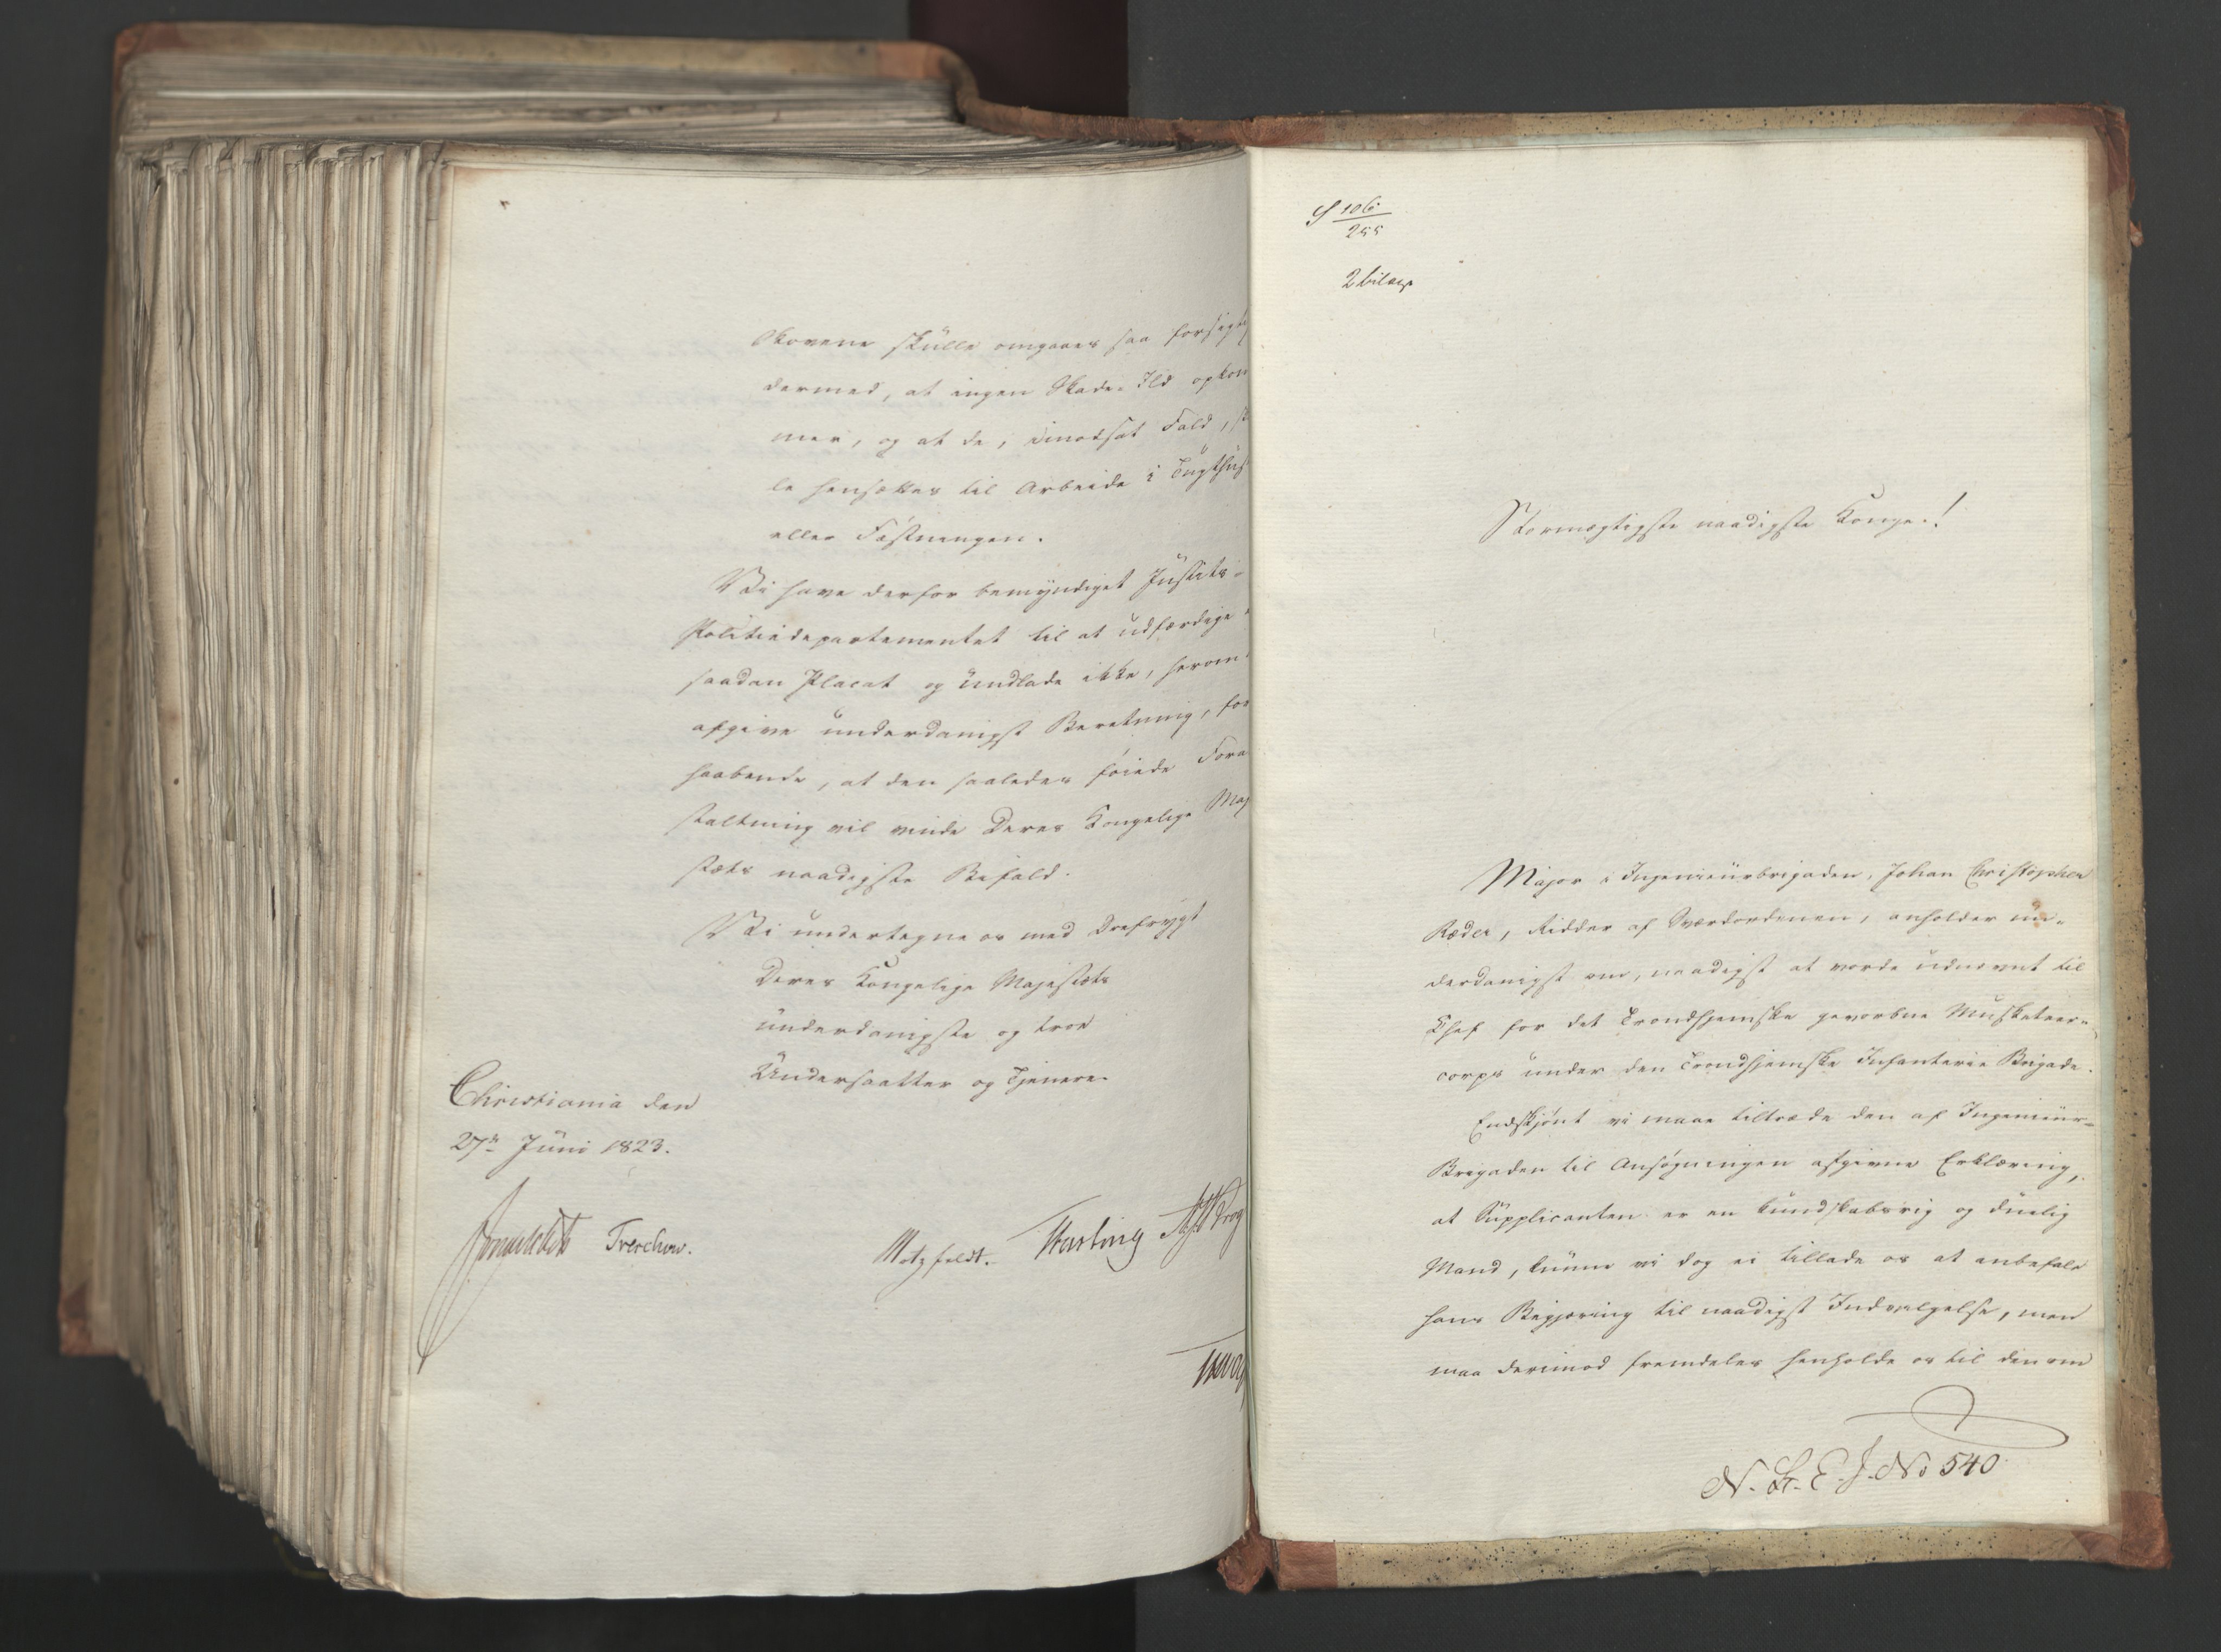 Skovene skulle omgaaes saa forsigti
dermed, at ingen Skade-Ild opkom
mer, og at de, i modsat Fald, sk
le hensættes til Arbeide i Tugthus
eller Fæstningen.
Vi have derfor bemyndiget Justits-
Politiedepartementet til at udfærdige
saadan Placat og undlade ikke, herom
afgive underdanigst Beretning, for
haabende, at den saaledes føiede Foran
staltning vil vinde Deres Kongelige Maj
stæts naadigste Bifald.
Vi undertegne os med Ærefrygt
Deres Kongelige Majestæts
underdanigste og troe
Undersaatter og Tjenere
Christiania den
27de Juni 1823.
Treschow.
Motzfeldt.
S 106
255
2 bilag
Stormægtigste naadigste Konge!
Major i Ingenieurbrigaden, Johan Christopher
Ræder, Ridder af Sværdordenen, anholder un-
derdanigst om, naadigst at vorde udnævnt til
Chef for det Trondhjemske gevorbne Musketeer-
corps under den Trondhjemske Infanterie Brigade.
Endskjønt vi maae tiltræde den af Ingenieur-
Brigaden til Ansøgningen afgivne Erklæring,
at Supplicanten er en kundskabsrig og duelig
Mand, kunne vi dog ei tillade os at anbefale
hans Begjæring til naadigst Indvilgelse, men
maa derimod fremdeles henholde os til den om
N. St. E. J. No 540